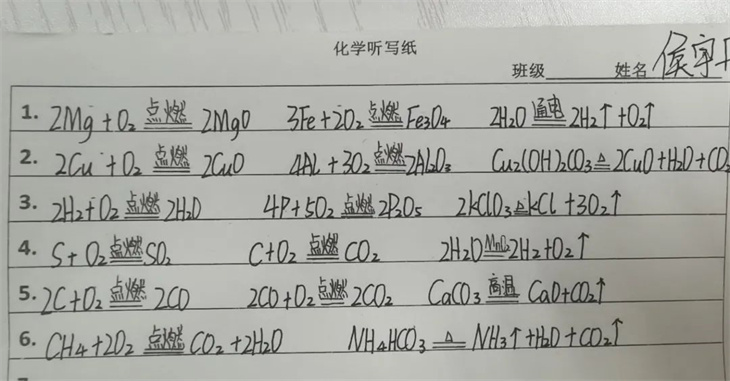 化学听写纸
班级 姓名 侯宇
1. 2Mg + O₂ 点燃 2MgO 3Fe + 2O₂ 点燃 Fe₃O₄ 2H₂O 通电 2H₂↑ + O₂↑
2. 2Cu + O₂ 点燃 2CuO 4Al + 3O₂ 点燃 2Al₂O₃ Cu₂(OH)₂CO₃ △ 2CuO + H₂O + CO₂
3. 2H₂ + O₂ 点燃 2H₂O 4P + 5O₂ 点燃 2P₂O₅ 2kClO₃ △ kCl + 3O₂↑
4. S + O₂ 点燃 SO₂ C + O₂ 点燃 CO₂ 2H₂O MnO₂ 2H₂ + O₂↑
5. 2C + O₂ 点燃 2CO 2CO + O₂ 点燃 2CO₂ CaCO₃ 高温 CaO + CO₂↑
6. CH₄ + 2O₂ 点燃 CO₂ + 2H₂O NH₄HCO₃ △ NH₃↑ + H₂O + CO₂↑